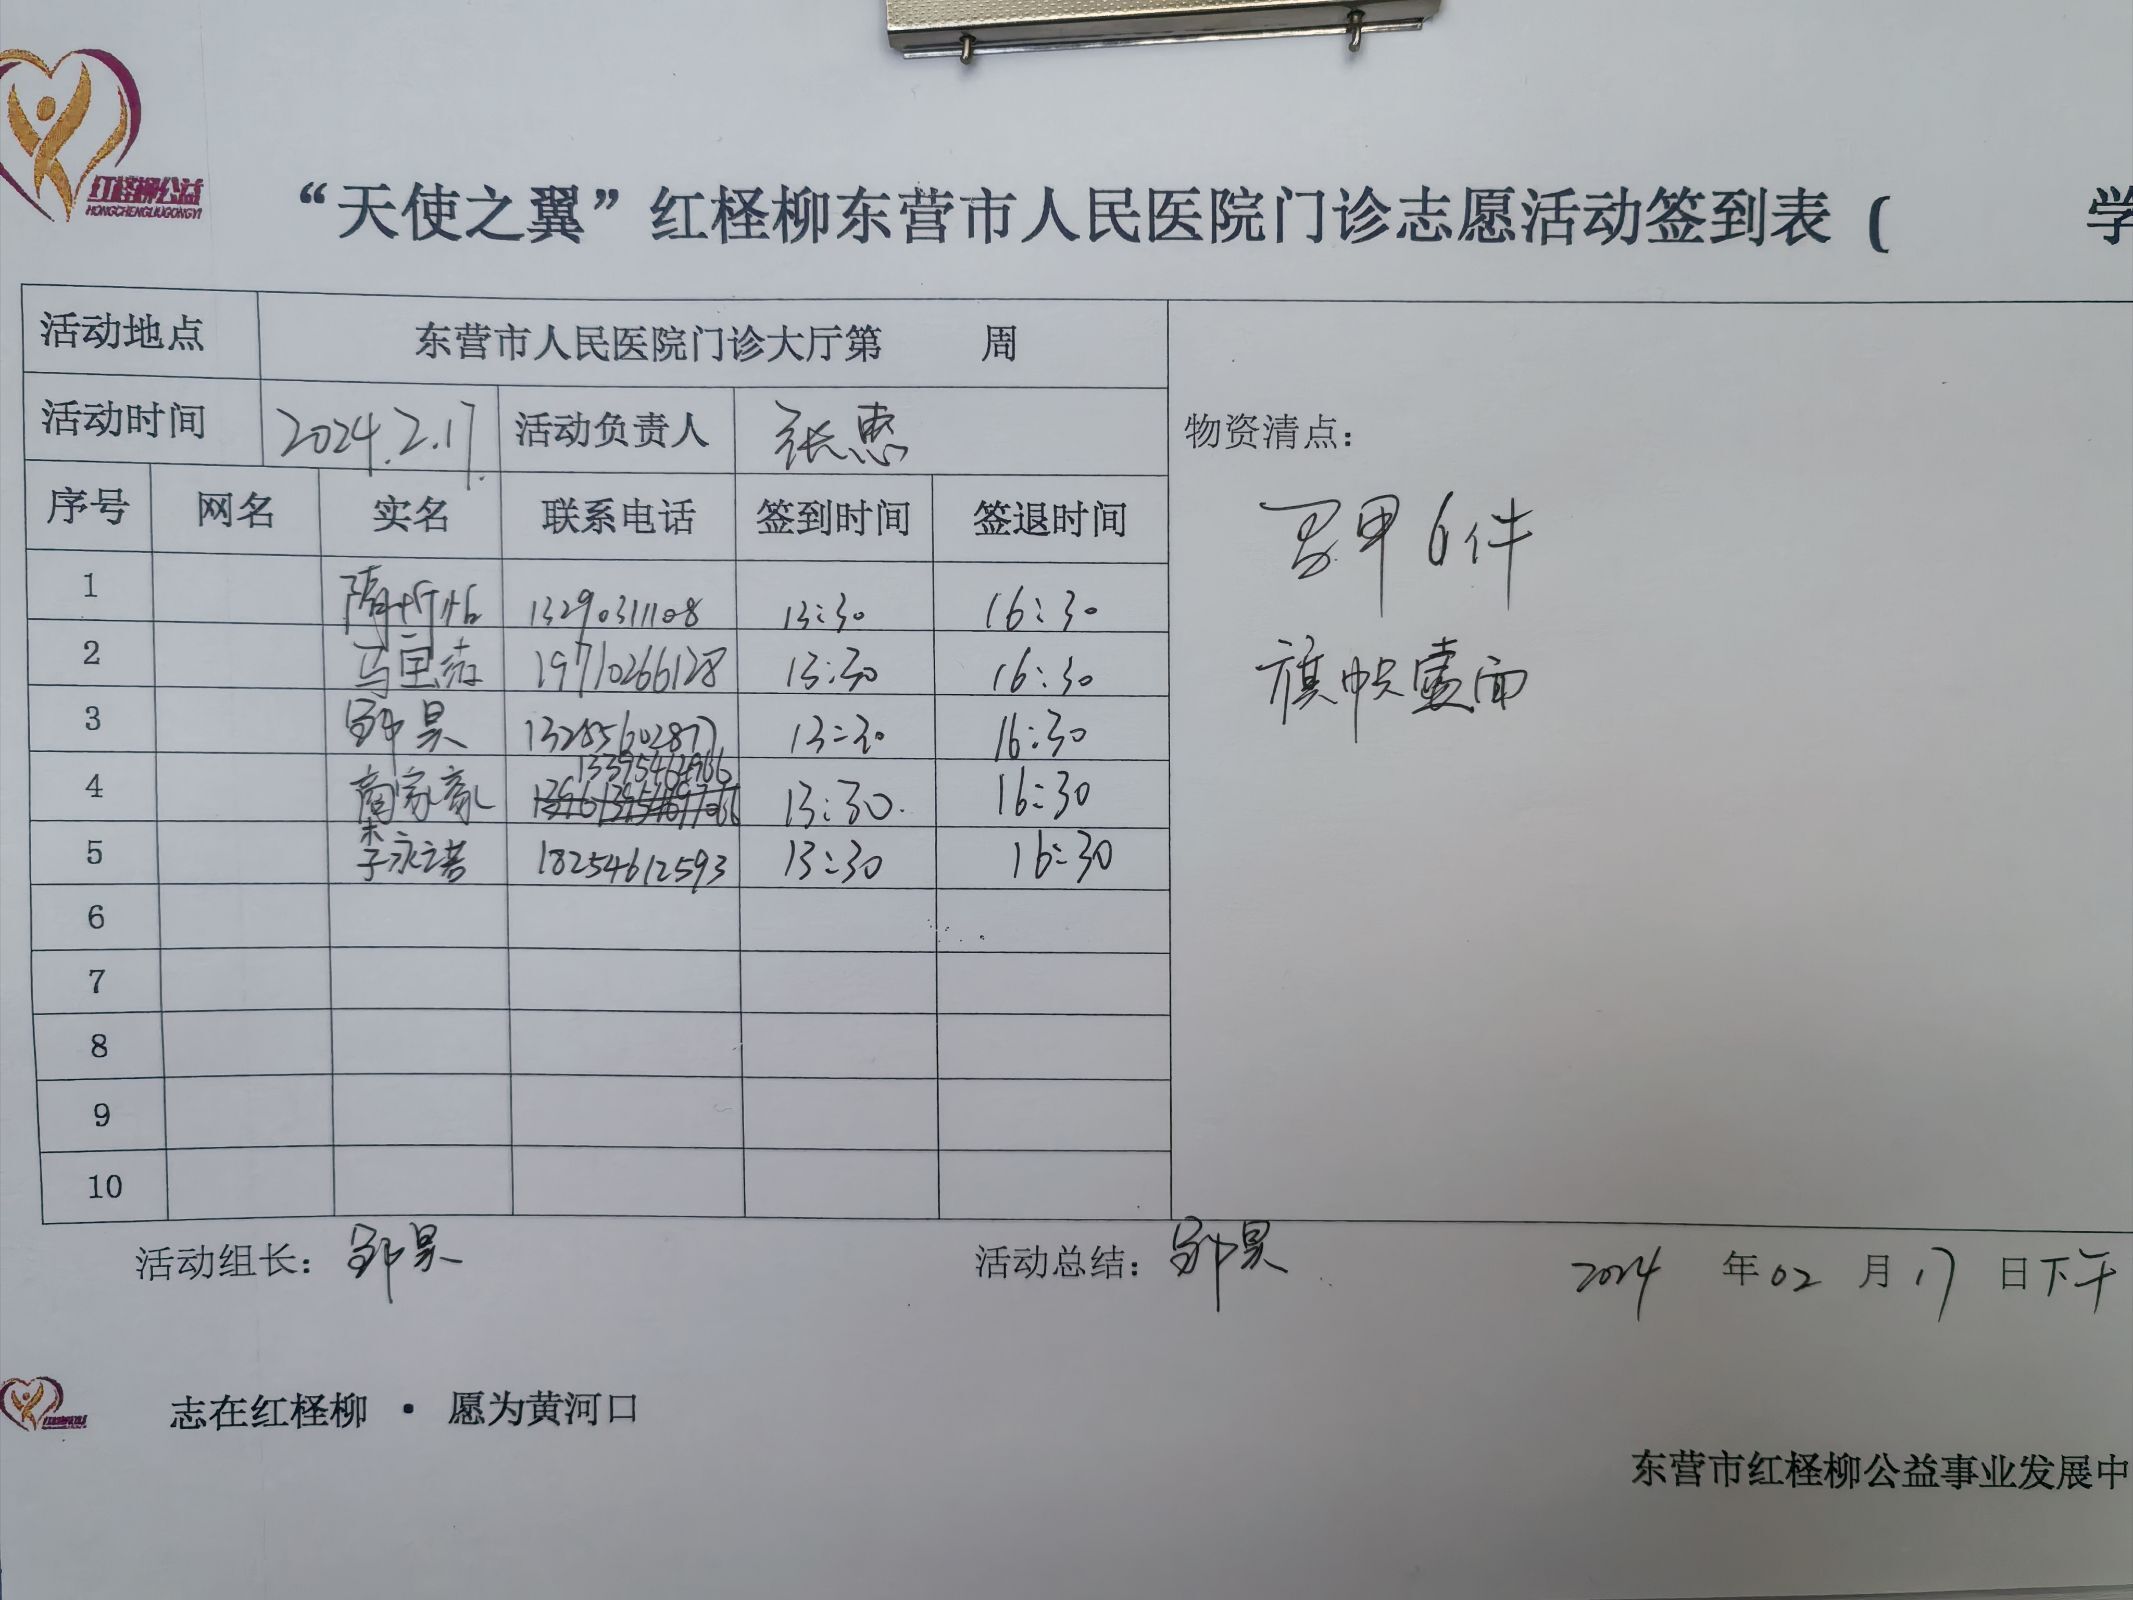 红柽柳公益
HONGCHENGLIUGONGYI
“天使之翼”红柽柳东营市人民医院门诊志愿活动签到表（ 学
活动地点 东营市人民医院门诊大厅第 周
活动时间 2024.2.17. 活动负责人 张惠
物资清点：
序号 网名 实名 联系电话 签到时间 签退时间
马甲6件
旗帜壹面
1 隋 13290311108 13:30 16:30
2 马 19710266128 13:30 16:30
3 昊 13285602877 13:30 16:30
4 商家豪 13395461966 13:30 16:30
5 李永诺 18254612593 13:30 16:30
6
7
8
9
10
活动组长： 昊 活动总结： 昊 2024 年 02 月 17 日下午
志在红柽柳 · 愿为黄河口
东营市红柽柳公益事业发展中